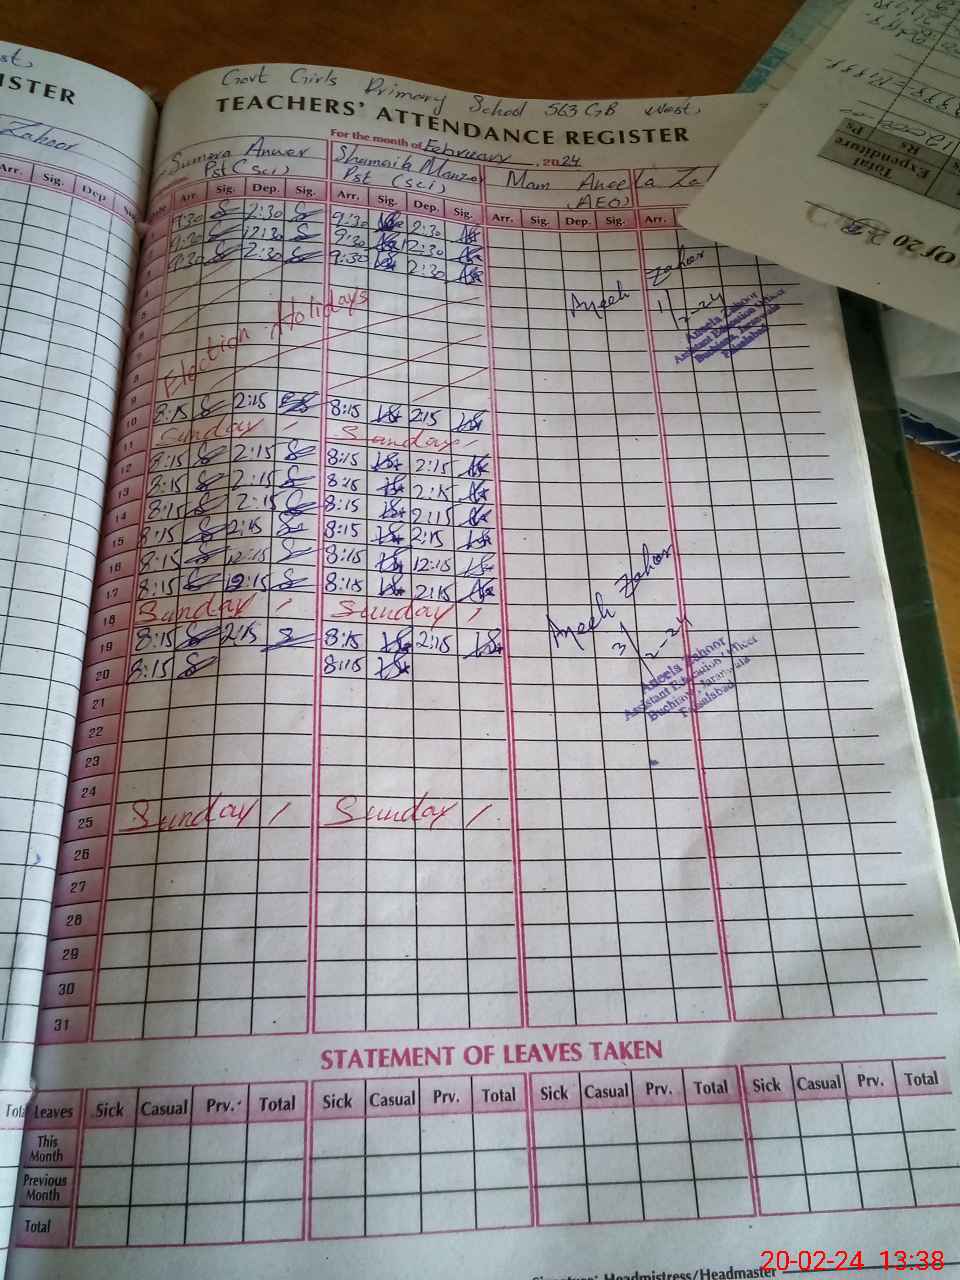 ISTER
Zahoor
Arr. Sig. Dep.
Govt Girls Primary School 563 GB West,
TEACHERS' ATTENDANCE REGISTER
For the month of February, 2024
Sumera Anwer Shumaila Manzor Mam Aneela
Pst (sci) Pst (sci) (AEO)
Arr. Sig. Dep. Sig. Arr. Sig. Dep. Sig. Arr. Sig. Dep. Sig. Arr.
9:30 2:30 9:30 2:30
9:30 12:30 9:30 12:30
9:30 2:30 9:30 2:30
4
5
Election Holidays
8
9
10 8:15 2:15 8:15 2:15
11 Sunday Sunday
12 8:15 2:15 8:15 2:15
13 8:15 2:15 8:15 2:15
14 8:15 2:15 8:15 2:15
15 8:15 2:15 8:15 2:15
16 8:15 12:15 8:15 12:15
17 8:15 2:15 8:15 2:15
18 Sunday Sunday
19 8:15 2:15 8:15 2:15
20 8:15 8:15
21
22
23
24
25 Sunday Sunday
26
27
28
29
30
31
Aneela Zahoor
1/2-24
Aneela Zahoor
Assistant Education Officer
Buchiana, Jaranwala
Faisalabad
Aneela Zahoor
3/2-24
Aneela Zahoor
Assistant Education Officer
Buchiana, Jaranwala
Faisalabad
Total
Expenditure
Rs
Ps
of 20
STATEMENT OF LEAVES TAKEN
Leaves Sick Casual Prv. Total Sick Casual Prv. Total Sick Casual Prv. Total Sick Casual Prv. Total
This
Month
Previous
Month
Total
Signature: Headmistress/Headmaster
20-02-24 13:38